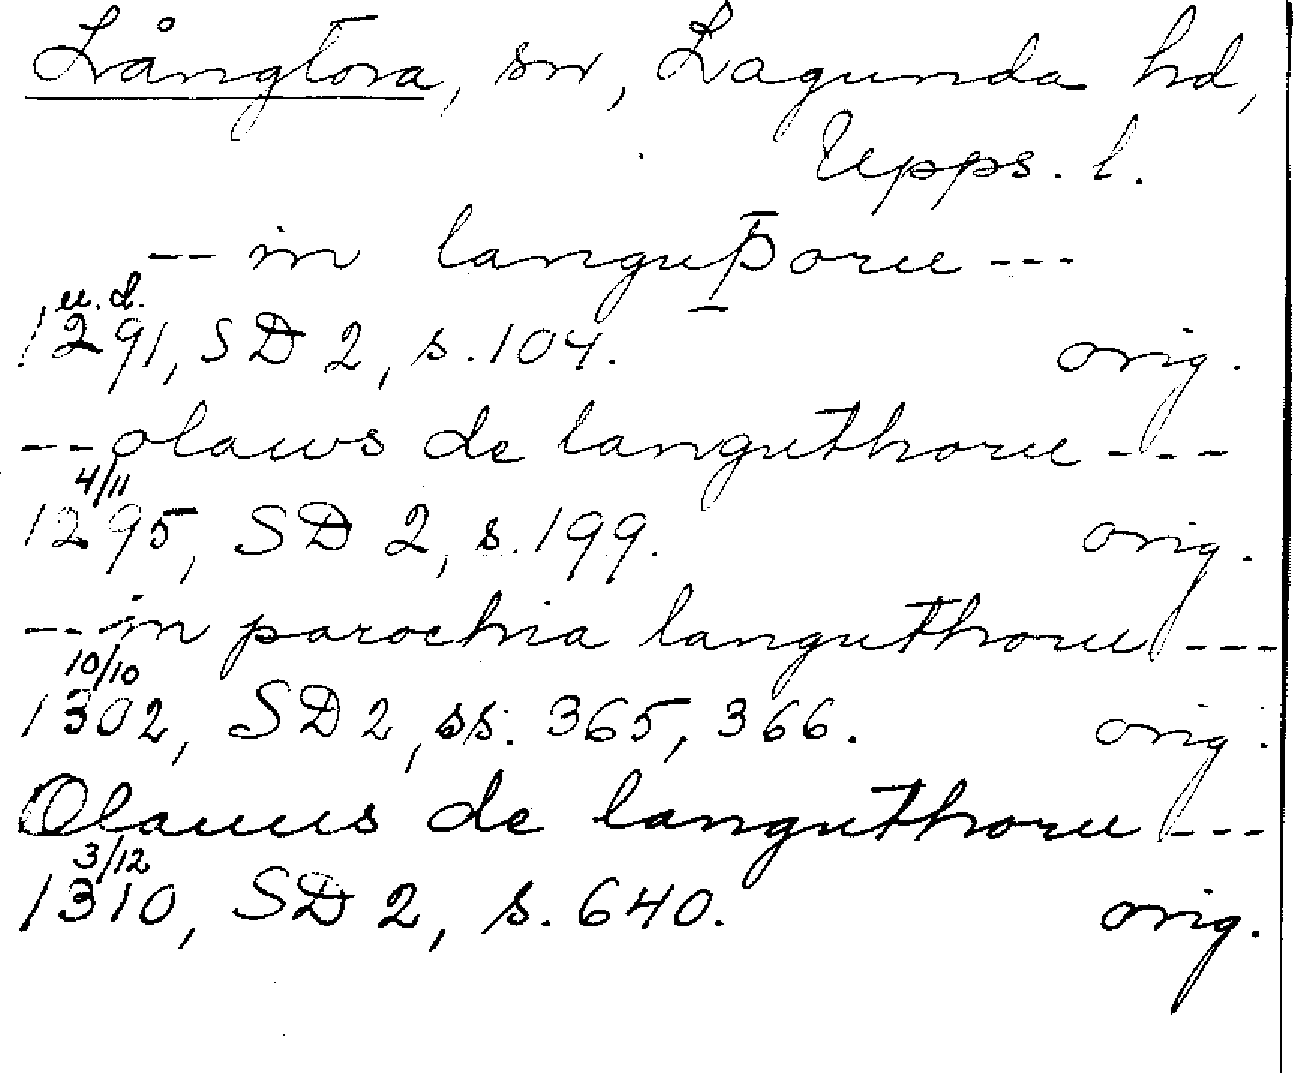 Långtora, sn, Lagunda hd,
Upps. l.
-- in languÞoru ---
u. d.
1291, SD 2, s. 104. orig.
-- olaws de languthoru ---
4/11
1295, SD 2, s. 199. orig.
--- in parochia languthoru ---
10/10
1302, SD 2, ss. 365, 366. orig.
Olauus de languthoru ---
3/12
1310, SD 2, s. 640. orig.